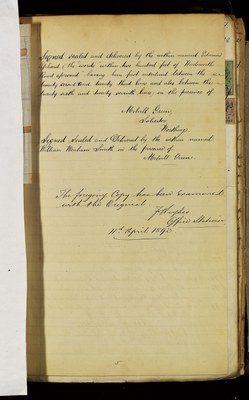 Signed sealed and delivered by the within named Edmund
( the words within two hundred feet of
Road aforesaid having been first interlined between the
twenty second and twenty third lines and also between the
twenty sixth and twenty seventh lines) in the presence of
Melvill Green
Solicitor
Worthing
Signed Sealed and Delivered by the within named
William Smith in the presence of
Melvill Green
The foregoing Copy has been Examined
with the Original.
Office
11th April 1890